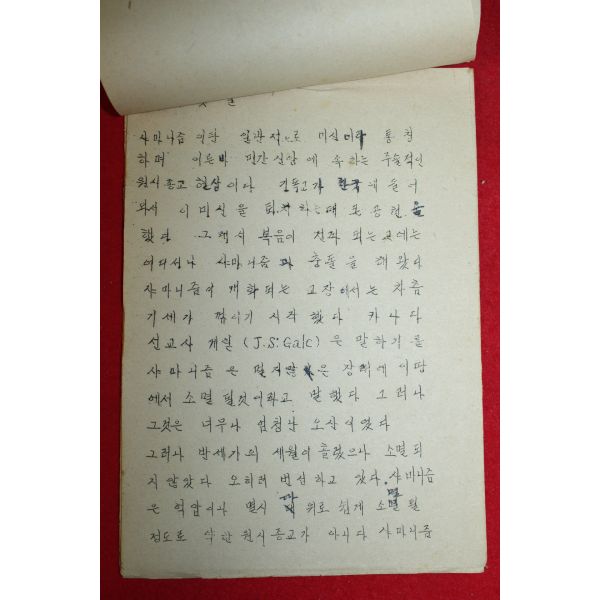 샤마니즘 이란 일반적으로 미신이라 통칭
하며 이른바 민간신앙에 속하는 주술적인
원시종교 현상이다 기독교가 한국에 들어
와서 이 미신을 퇴치하는데 큰 공헌을
했다 그래서 복음이 전파 되는 곳에는
어디서나 샤마니즘과 충돌을 해 왔다
샤마니즘이 개화되는 고장에서는 차츰
기세가 꺾이기 시작 했다 카나다
선교사 게일 (J.S. Gale) 은 말하기를
샤마니즘 은 멀지않은 장래에 이땅
에서 소멸 될것이라고 말했다 그러나
그것은 너무나 엄청난 오산이였다
그러나 반세기의 세월이 흘렀으나 소멸되
지 않았다 오히려 번성하고 있다. 샤마니즘
은 억압이나 멸시 따위로 쉽게 소멸될
정도로 약한 원시종교가 아니다 샤마니즘